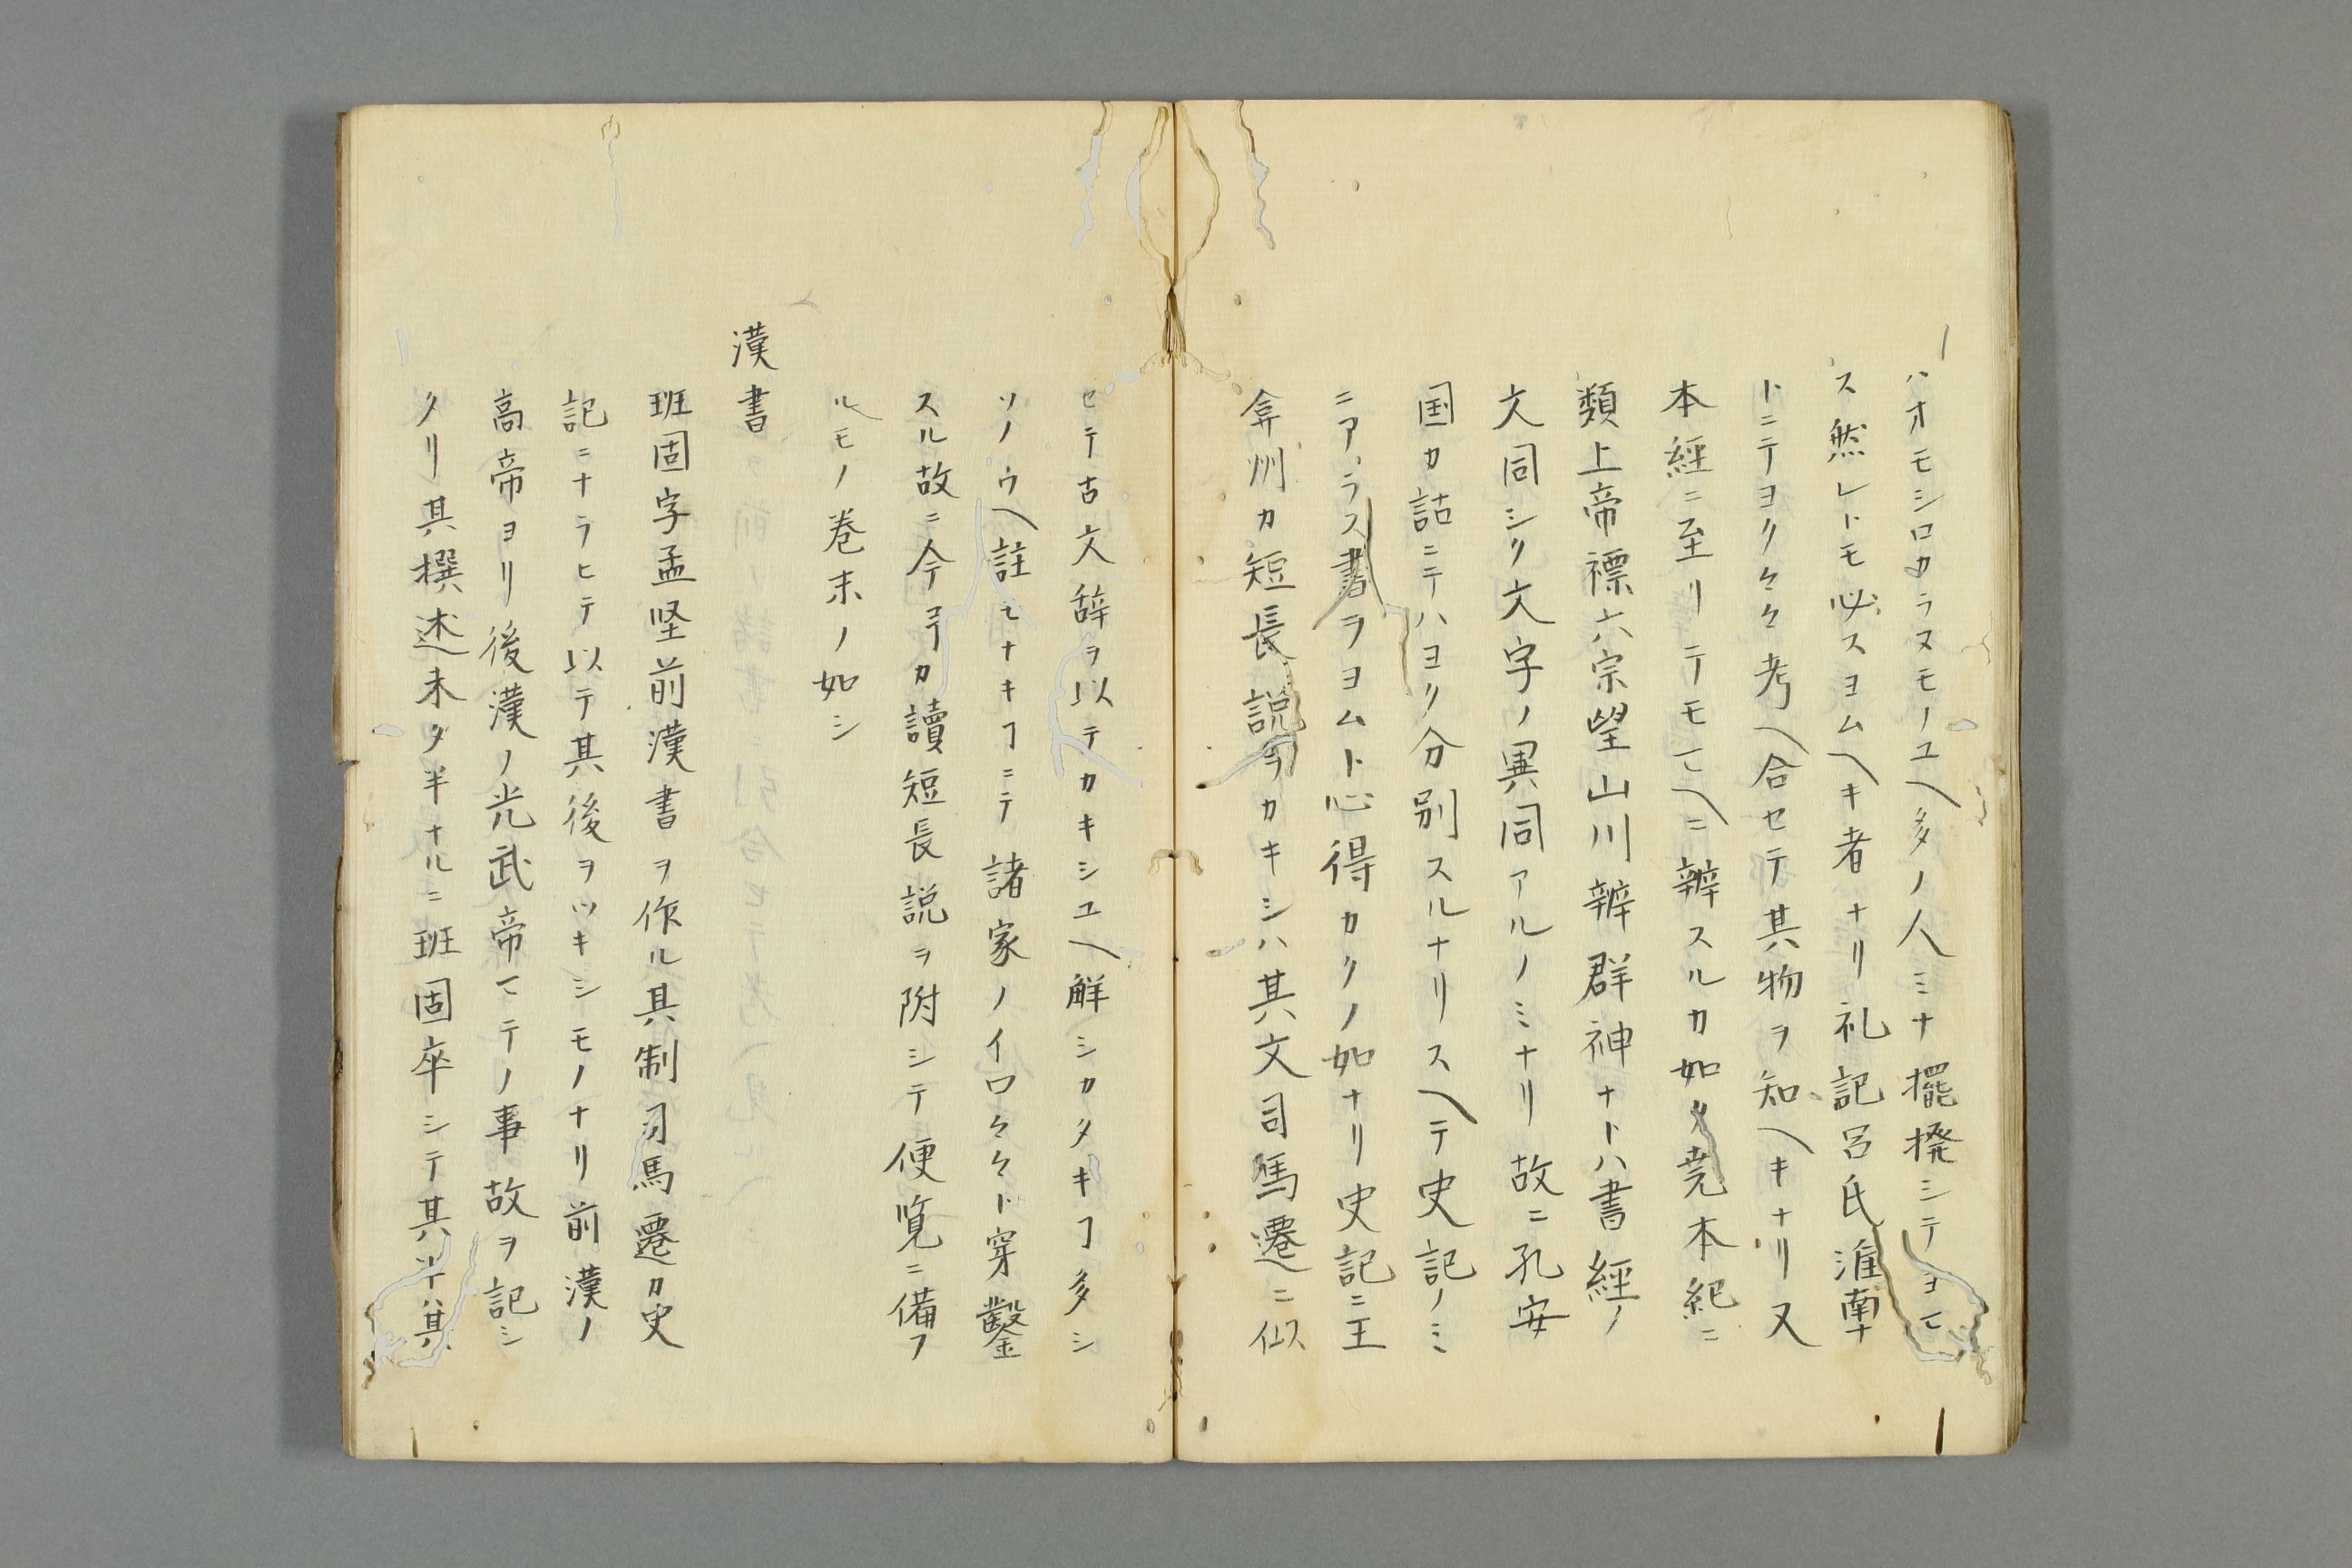 ハオモシロカラヌモノユヘ多ノ人ミナ擺撥シテヨマ
ス然レトモ必スヨムヘキ者ナリ礼記呂氏淮南ナ
トニテヨク々々考ヘ合セテ其物ヲ知ヘキナリ又
本經ニ至リテモマヘニ辨スルカ如ク尭本紀ニ
類上帝禋六宗望山川辨群神ナトハ書經ノ
文同シク文字ノ異同アルノミナリ故ニ孔安
国カ詁ニテハヨク分別スルナリスヘテ史記ノミ
ニアラス書ヲヨムト心得カクノ如ナリ史記ニ王
弇州カ短長説ヲカキシハ其文司馬遷ニ似
セテ古文辞ヲ以テカキシユヘ觧シカタキヿ多シ
ソノウヘ註モナキヿニテ諸家ノイロ々々ト穿鑿
スル故ニ今予カ讀短長説ヲ附シテ便覧ニ備フ
ルモノ巻末ノ如シ
漢書
班固字孟坚前漢書ヲ作ル其制司馬遷カ史
記ニナラヒテ以テ其後ヲツキシモノナリ前漢ノ
高帝ヨリ後漢ノ光武帝マテノ事故ヲ記シ
タリ其撰述未タ半ナルニ班固卒シテ其半ハ其